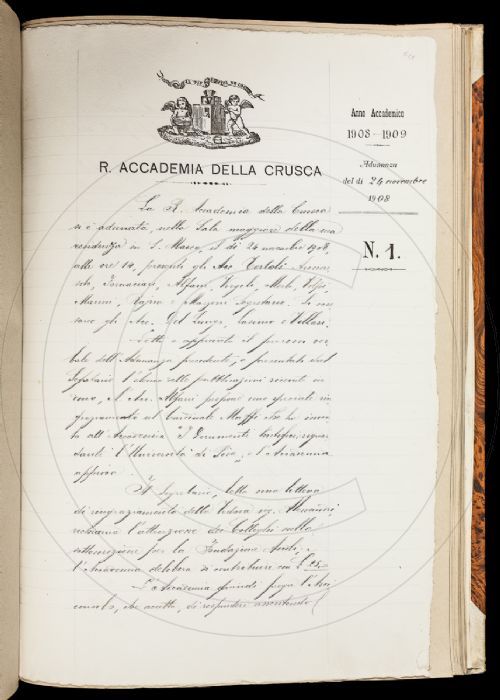 Anno Accademico
1908-1909
Adunanza
del dì 24 novembre
1908
N. 1.
R. ACCADEMIA DELLA CRUSCA
La R. Accademia della Crusca
si è adunata nella Sala maggiore della sua
residenza in S. Marco, il dì 24 novembre 1908,
alle ore 14, presenti gli Acc. Tortoli Arcicon-
solo, Fornaciari, Alfani, Vigo, Merlo, Volpi,
Mazzoni Segretario.
gli Acc. Del Lungo, e Villari.
Letto e approvato il processo ver-
bale dell'Adunanza precedente, e presentato dal
Segretario l'elenco delle pubblicazioni ricevute in
dono, l'Acc. Alfani propone uno speciale rin-
graziamento al Cardinale Maffi che ha invia-
to all'Accademia i Documenti riguar-
danti l'Università di Pisa, e l'Accademia
approva.
Il Segretario, letta una lettera
di ringraziamento della Vedova
richiama l'attenzione dei Colleghi sulla
sottoscrizione per la Fondazione
l'Accademia delibera di contribuire con £ 25.
L'Accademia quindi prega l'Arci-
consolo, che accetta, di rispondere